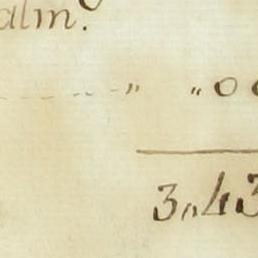 alm.
" " 0
3,,43